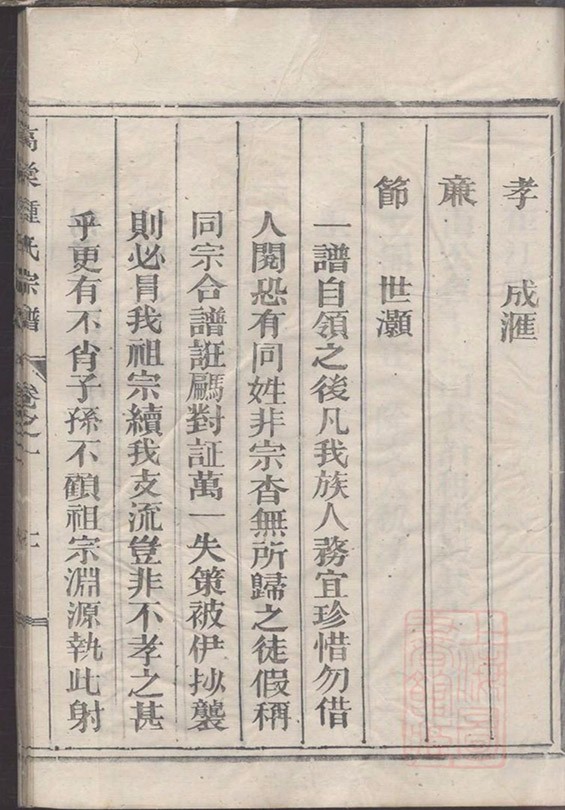 孝 成滙
廉
節 世灝
一譜自領之後凡我族人務宜珍惜勿借
人閱恐有同姓非宗杳無所歸之徒假稱
同宗合譜誑屫對証萬一失策被伊抄襲
則必冐我祖宗續我支流豈非不孝之甚
乎更有不肖子孫不顧祖宗淵源執此射
高梁鍾氏宗譜 卷之一